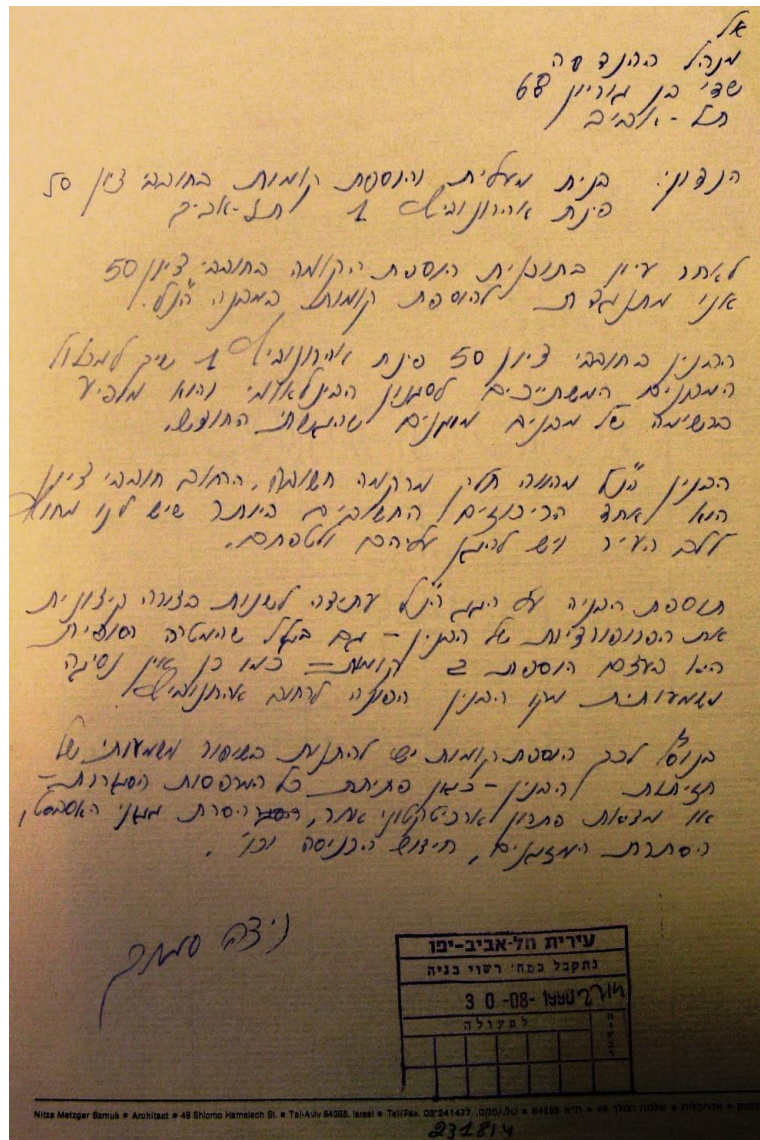 אל
מנהל ההנדסה
שד' בן גוריון 68
תל-אביב
הנדון: בנית מעלית והוספת קומות בחובבי ציון 50
פינת אהרונוביץ 1 תל-אביב
לאחר עיון בתוכנית הוספת הקומה בחובבי ציון 50
אני מתנגדת להוספת קומות במבנה הנ"ל.
הבנין בחובבי ציון 50 פינת אהרונוביץ 1 שיך למכלול
המבנים המשתייכים לסגנון הבינלאומי והוא מופיע
ברשימה של מבנים מוגנים שהגשתי החודש.
הבנין הנ"ל מהווה חלק מרקמה חשובה. הרחוב חובבי ציון
הוא אחד הריכוזים החשובים ביותר שיש לנו מחוץ
ללב העיר ויש להגן עליהם ולטפחם.
תוספת הבניה על הגג הנ"ל עתידה לשנות בצורה קיצונית
את הפרופורציות של הבנין - גם בגלל שהמטרה הסופית
היא בעצם הוספת 2 קומות - כמו כן אין נסיגה
משמעותית מקו הבנין הפונה לרחוב אהרונוביץ
בנוסף לכך הוספת קומות יש להתנות בשיפור משמעותי של
חזיתות הבנין - כאן פתיחת כל המרפסות הסגורות -
או מציאת פתרון ארכיטקטוני אחר, הסרת גגוני האסבסט,
הסתרת המזגנים, חידוש הכניסה וכו'.
ניצה סמוק
עירית תל-אביב-יפו
נתקבל במח' רשוי בניה
30-08-1990
לפעולה
Nitza Metzger Szmuk • Architect • 49 Shlomo Hamelech St. • Tel-Aviv 64386, Israel • Tel/Fax. 03-241477
231814